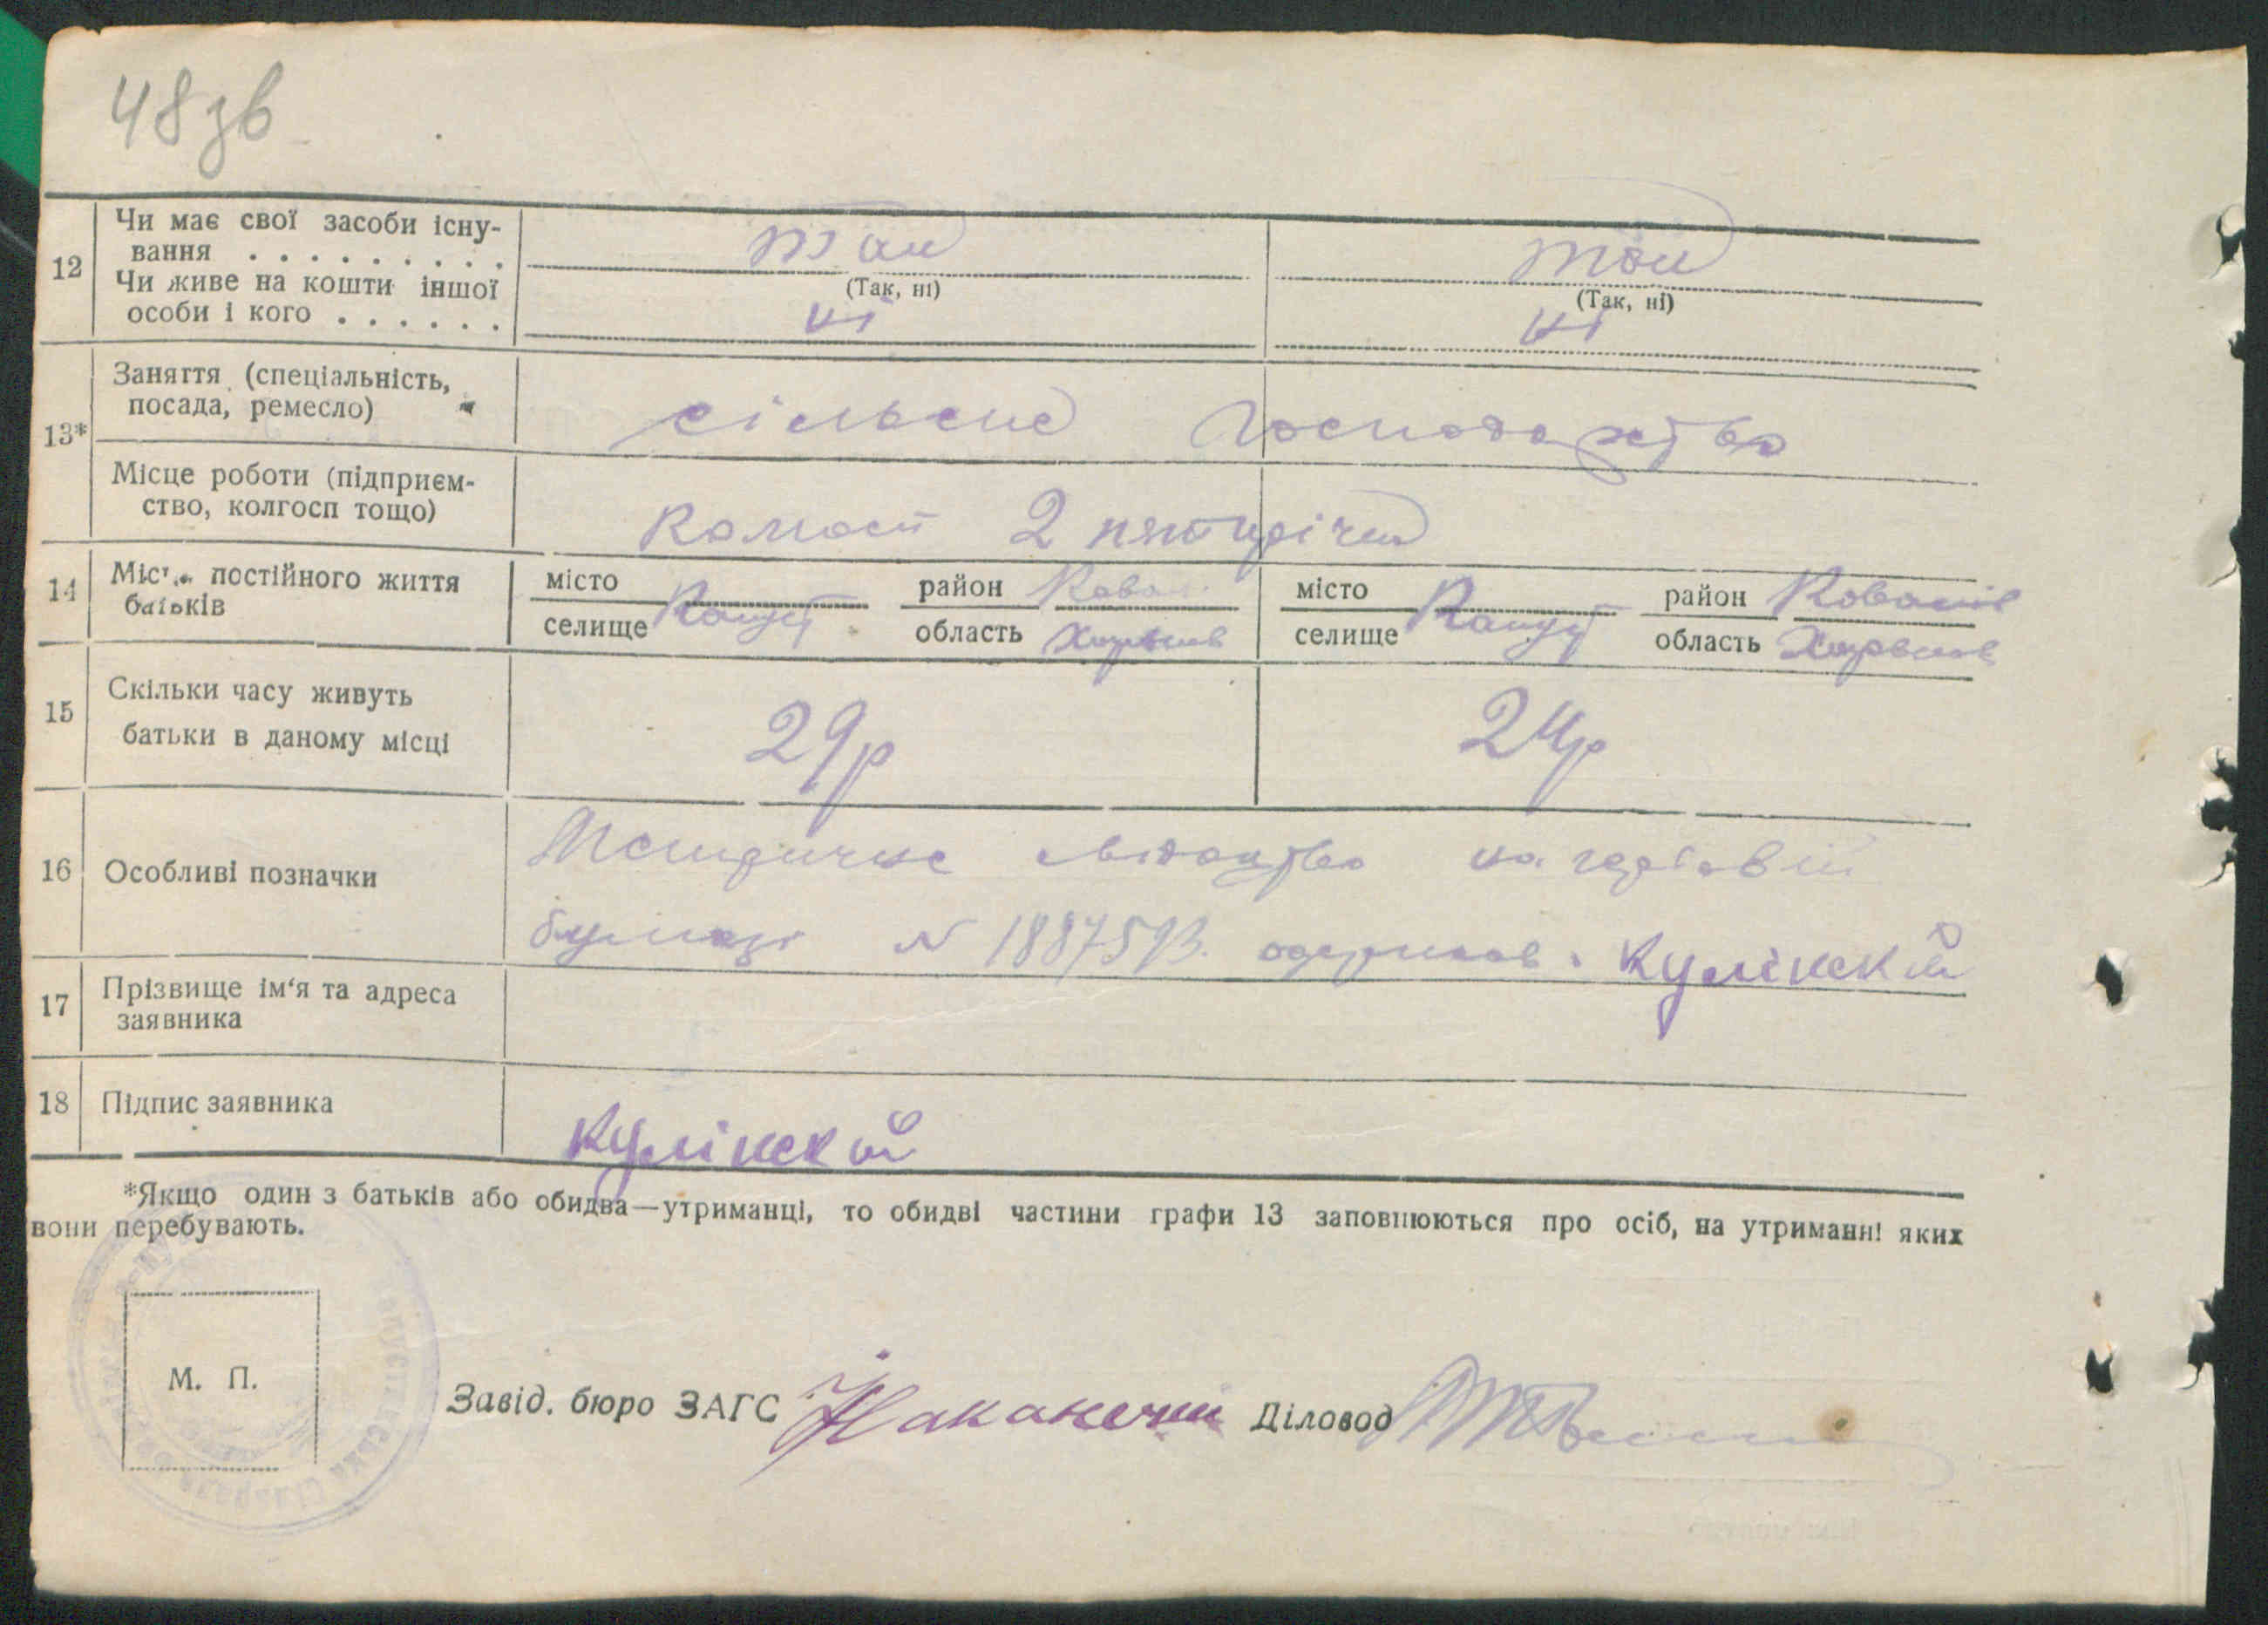 48 зв
12 Чи має свої засоби існу-
вання . . . . . . . . . так так
(Так, ні) (Так, ні)
Чи живе на кошти іншої
особи і кого . . . . . . ні ні
13* Заняття (спеціальність,
посада, ремесло) сільське господарство
Місце роботи (підприєм-
ство, колгосп тощо) колгосп 2 пятирічка
14 Місце постійного життя
батьків
місто район місто район
селище область Харьков селище область Харьков
15 Скільки часу живуть
батьки в даному місці 29р 24р
16 Особливі позначки Метричне свідоцтво на гербовій
бумазі N одержав. Кулінскій
17 Прізвище ім'я та адреса
заявника
18 Підпис заявника Кулінскій
*Якщо один з батьків або обидва—утриманці, то обидві частини графи 13 заповнюються про осіб, на утриманні яких
вони перебувають.
М. П.
Завід. бюро ЗАГС Діловод